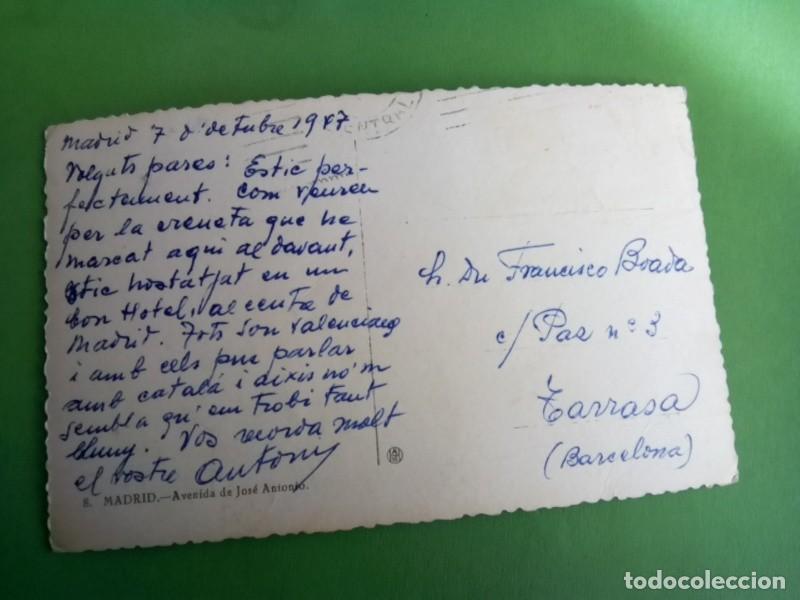 Madrid 7 d'octubre 1947
Volguts pares: Estic per-
fectament. Com veureu
per la creueta que he
marcat aquí al davant,
estic hostatjat en un
bon Hotel, al centre de
Madrid. Tots son Valencians
i amb ells puc parlar
amb catalá i aixis no'm
sembla qu'em trobi tant
lluny. Vos recorda molt
el vostre Antony
8. MADRID.—Avenida de José Antonio.
Francisco Boada
c/ Paz nº 3
Tarrasa
(Barcelona)
todocoleccion